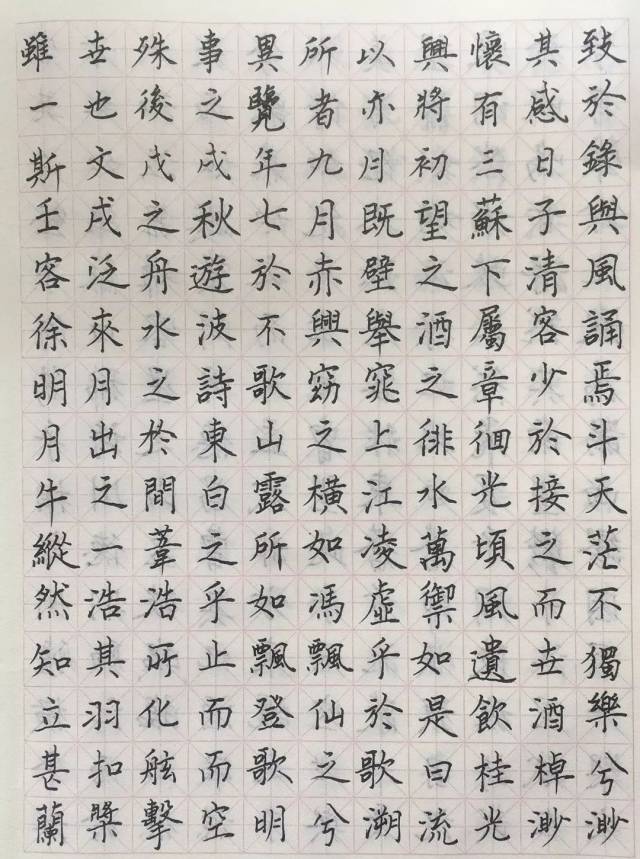 雖世殊事異所以興懷其致
一也後之覽者亦將有感於
斯文戊戌年九月初三日錄
壬戌之秋七月既望蘇子與
客泛舟遊於赤壁之下清風
徐來水波不興舉酒屬客誦
明月之詩歌窈窕之章少焉
月出於東山之上徘徊於斗
牛之間白露橫江水光接天
縱一葦之所如凌萬頃之茫
然浩浩乎如馮虛禦風而不
知其所止飄飄乎如遺世獨
立羽化而登仙於是飲酒樂
甚扣舷而歌之歌曰桂棹兮
蘭槳擊空明兮溯流光渺渺